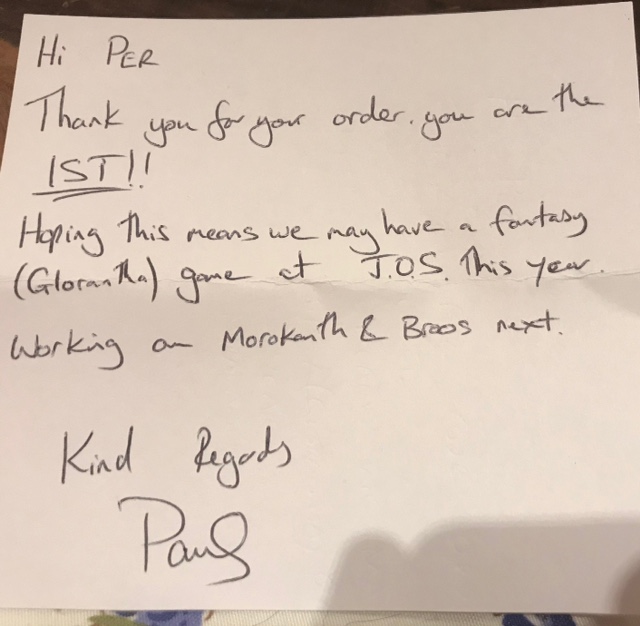 Hi PER
Thank you for your order. you are the
1ST!!
Hoping this means we may have a fantasy
(Glorantha) game at J.O.S. This year.
Working on Morokanth & Broos next.
Kind Regards
Paul